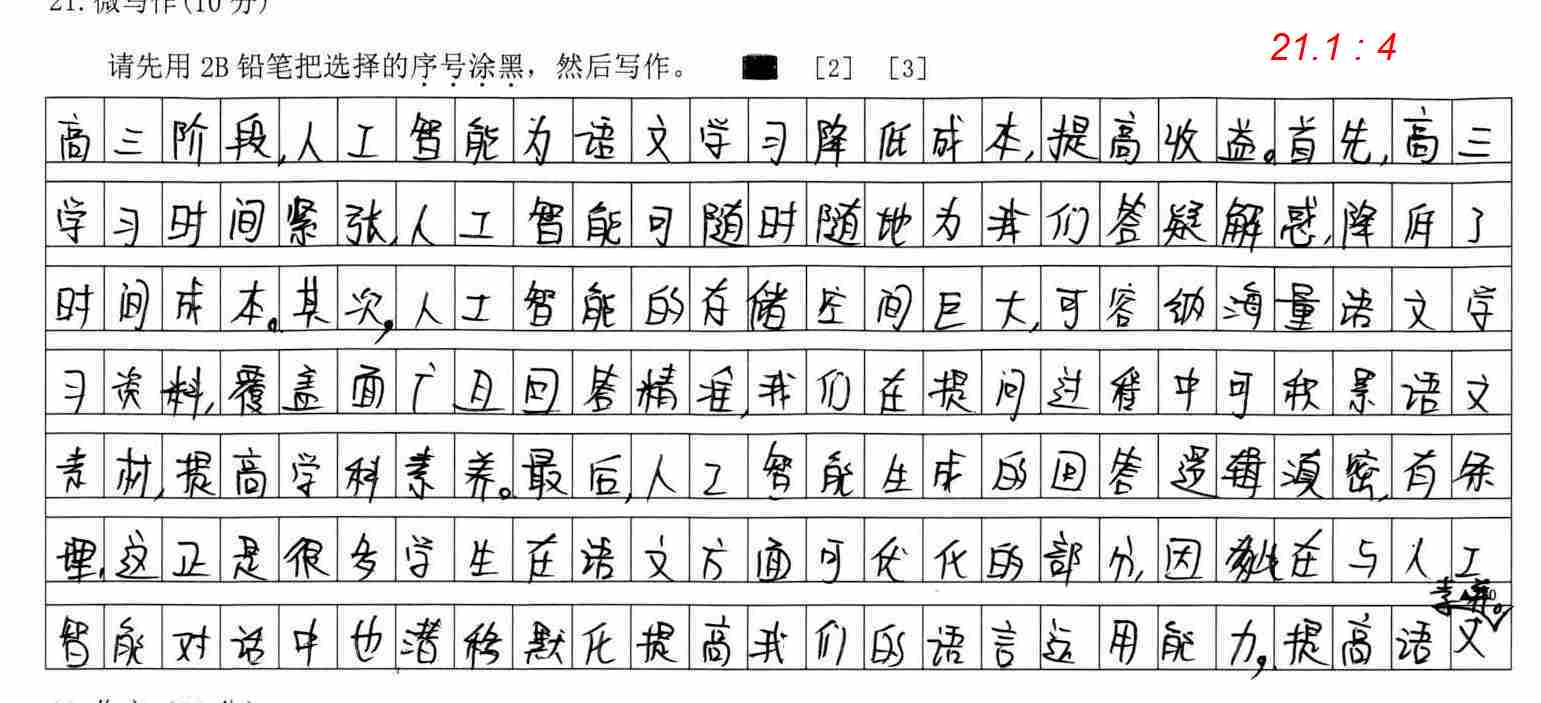 21.微写作(10分)
21.1 : 4
请先用 2B 铅笔把选择的序号涂黑，然后写作。 [2] [3]
高三阶段,人工智能为语文学习降低成本,提高收益。首先,高三
学习时间紧张,人工智能可随时随地为我们答疑解惑,降低了
时间成本。其次,人工智能的存储空间巨大,可容纳海量语文学
习资料,覆盖面广且回答精准,我们在提问过程中可积累语文
素材,提高学科素养。最后,人工智能生成的回答逻辑缜密,有条
理,这正是很多学生在语文方面可优化的部分,因此在与人工
智能对话中也潜移默化提高我们的语言运用能力,提高语文
素养。